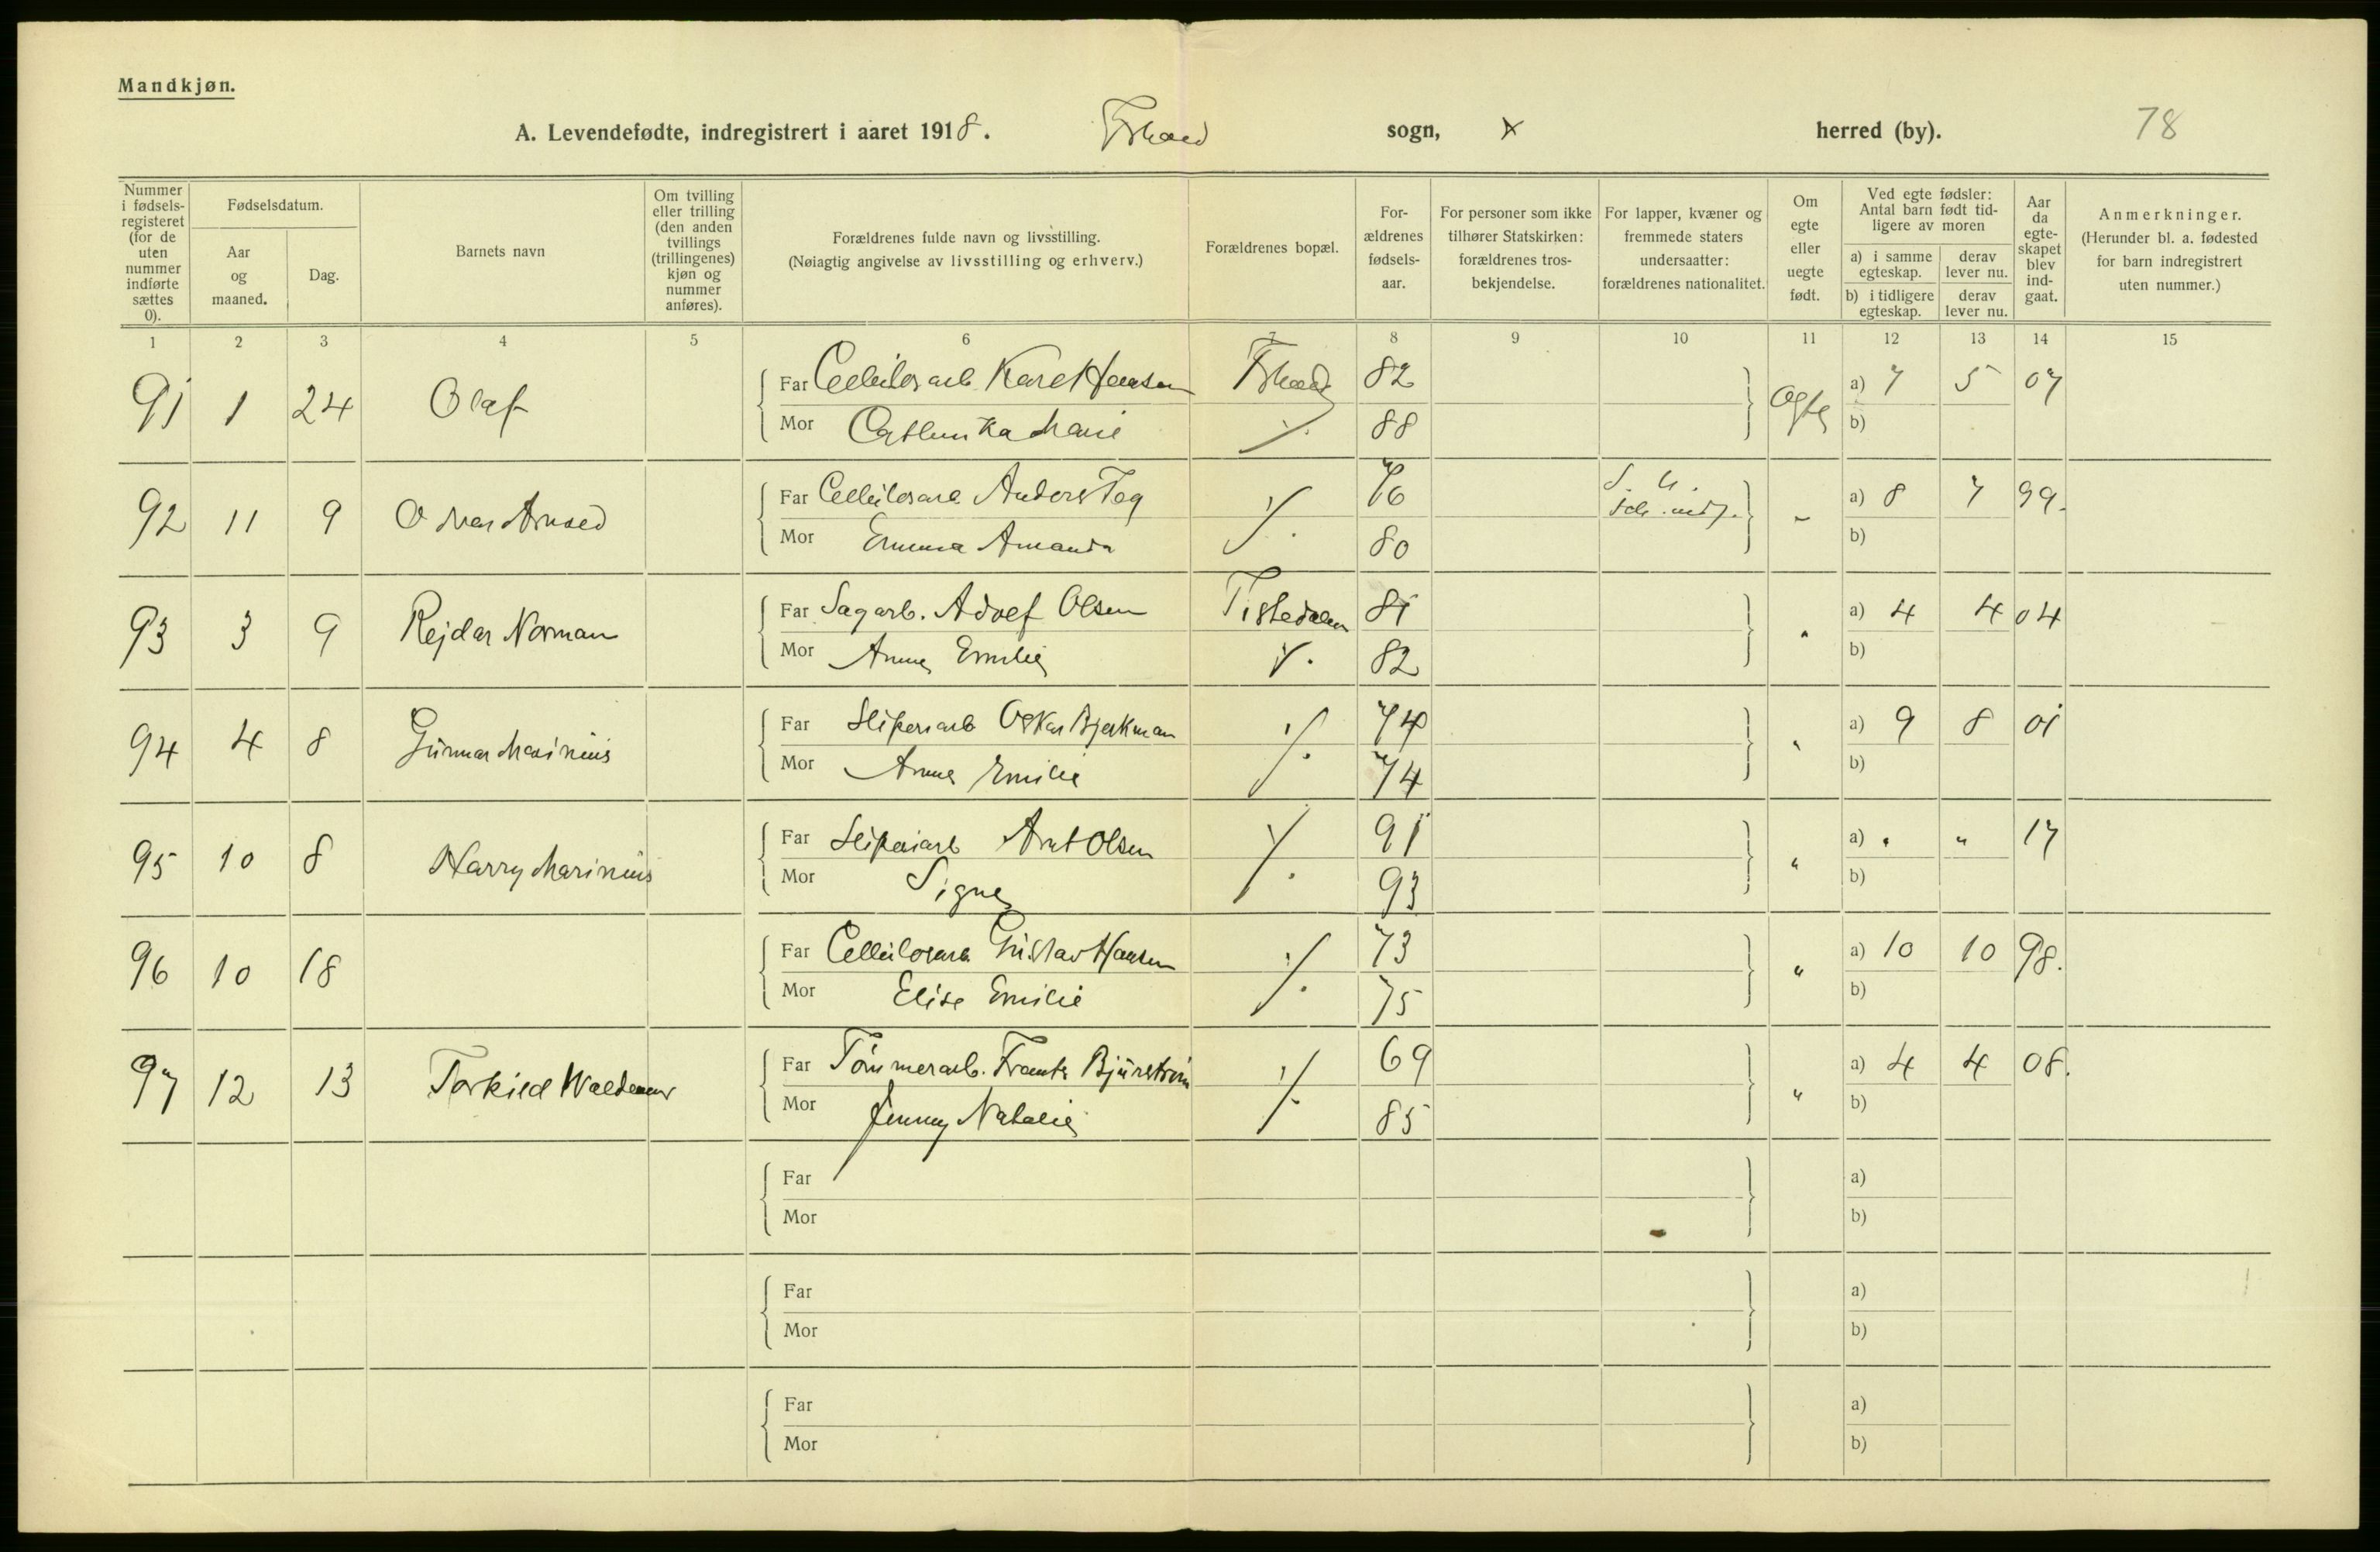 Mandkjøn.
A. Levendefødte, indregistrert i aaret 1918. sogn, herred (by). 78
Nummer i fødsels-registeret (for de uten nummer indførte sættes 0).
Fødselsdatum.
Aar og maaned.
Dag.
Barnets navn
Om tvilling eller trilling (den anden tvillings (trillingenes) kjøn og nummer anføres).
Forældrenes fulde navn og livsstilling.
(Nøiagtig angivelse av livsstilling og erhverv.)
Forældrenes bopæl.
For-ældrenes fødsels-aar.
For personer som ikke tilhører Statskirken: forældrenes tros-bekjendelse.
For lapper, kvæner og fremmede staters undersaatter: forældrenes nationalitet.
Om egte eller uegte født.
Ved egte fødsler: Antal barn født tid-ligere av moren
a) i samme egteskap.
derav lever nu.
b) i tidligere egteskap.
derav lever nu.
Aar da egte-skapet blev ind-gaat.
Anmerkninger.
(Herunder bl. a. fødested for barn indregistrert uten nummer.)
1 2 3 4 5 6 7 8 9 10 11 12 13 14 15
91 1 24 Olaf Far Hansen 82 Egte a) 7 5 07
Mor Marie 88 b)
92 11 9 Far Anders 76 a) 8 7 99.
Mor Emma Amanda 80 b)
93 3 9 Rejdar Norman Far Sagarb. Adolf Olsen Tistedalen 81 a) 4 4 04
Mor Anna Emilie 82 b)
94 4 8 Gunnar Marinius Far Sliperiarb Oskar Bjerkman ./. 74 " a) 9 8 01
Mor Anna Emilie 74 b)
95 10 8 Harry Marinius Far Sliperiarb Arnt Olsen ./. 91 " a) " " 17
Mor Signe 93 b)
96 10 18 Far Cellulosearb Gustav Hansen ./. 73 " a) 10 10 98.
Mor Elise Emilie 75 b)
97 12 13 Torkild Waldemar Far Tømmerarb. Frants Bjurstrøm ./. 69 " a) 4 4 08.
Mor Jenny Natalie 85 b)
Far a)
Mor b)
Far a)
Mor b)
Far a)
Mor b)